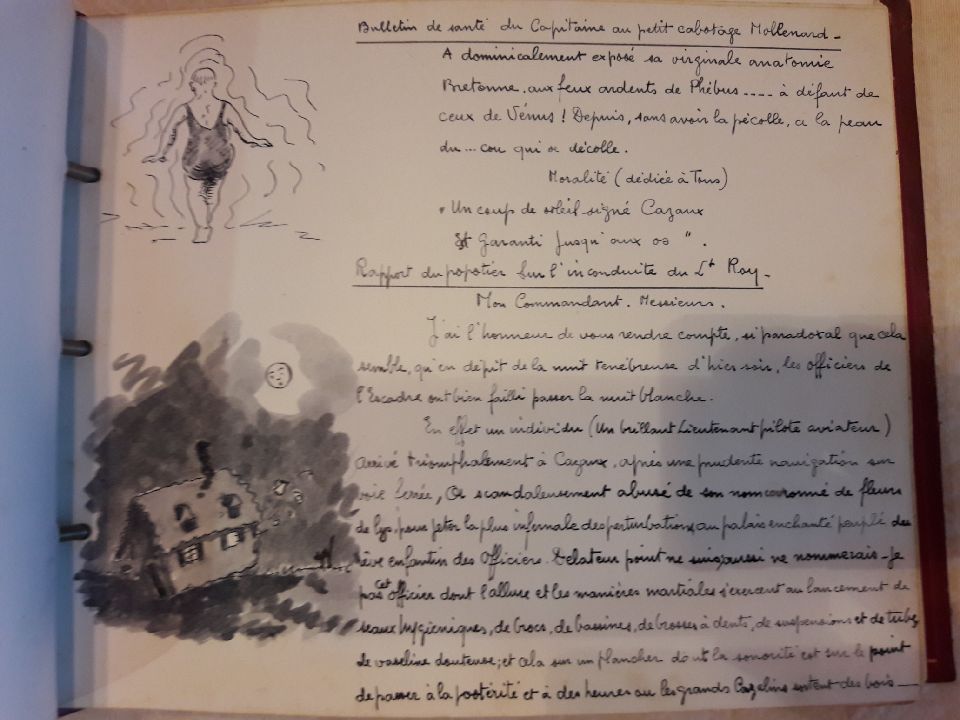 Bulletin de santé du Capitaine au petit cabotage Mollenard -
A dominicalement exposé sa virginale anatomie
Bretonne. aux feux ardents de Phébus .... à défaut de
ceux de Vénus ! Depuis, sans avoir la pécolle, a la peau
du ... cou qui se décolle.
Moralité (dédiée à Tous)
" Un coup de soleil signé Cazaux
Est Garanti jusqu'aux os ".
Rapport du popotier sur l'inconduite du Lt Roy -
Mon Commandant. Messieurs.
J'ai l'honneur de vous rendre compte, si paradoxal que cela
semble, qu'en dépit de la nuit ténébreuse d'hier soir, les officiers de
l'Escadre ont bien failli passer la nuit blanche.
En effet un individu (Un brillant Lieutenant pilote aviateur)
arrivé triomphalement à Cazaux, après une prudente navigation sur
voie ferrée, a scandaleusement abusé de son nom couronné de fleurs
de lys, pour jeter la plus infernale des perturbations au palais enchanté peuplé du
rêve enfantin des Officiers. Délateur point ne suis aussi ne nommerais-je
pas cet officier dont l'allure et les manières martiales s'exercent au lancement de
seaux hygiéniques, de brocs, de bassines, de brosses à dents, de suspensions et de tubes
de vaseline douteuse; et cela sur un plancher dont la sonorité est sur le point
de passer à la postérité et à des heures où les grands Cazelins sortent des bois -